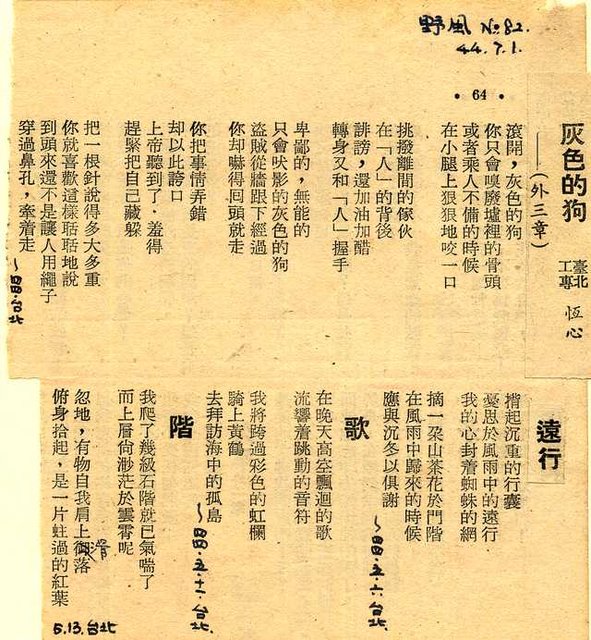 野風 No.82.
44.7.1.
• 64 •
灰色的狗
——(外三章)
臺北工專 恆心
滾開，灰色的狗
你只會嗅廢墟裡的骨頭
或者乘人不備的時候
在小腿上狠狠地咬一口
挑撥離間的傢伙
在「人」的背後
誹謗，還加油加醋
轉身又和「人」握手
卑鄙的，無能的
只會吠影的灰色的狗
盜賊從牆跟下經過
你却嚇得回頭就走
你把事情弄錯
却以此誇口
上帝聽到了．羞得
趕緊把自己藏躲
把一根針說得多大多重
你就喜歡這樣聒聒地說
到頭來還不是讓人用繩子
穿過鼻孔，牽着走
～四四．台北
遠行
揹起沉重的行囊
憂思於風雨中的遠行
我的心封着蜘蛛的網
摘一朶山茶花於門階
在風雨中歸來的時候
應與沉冬以俱謝
～四四．五．六台北．
歌
在晚天高空飄迴的歌
流響着跳動的音符
我將跨過彩色的虹欄
騎上黃鶴
去拜訪海中的孤島
～四四．五．十一．台北．
階
我爬了幾級石階就已氣喘了
而上層尙渺茫於雲霄呢
忽地，有物自我肩上滑落
俯身拾起，是一片蛀過的紅葉
5.13.台北